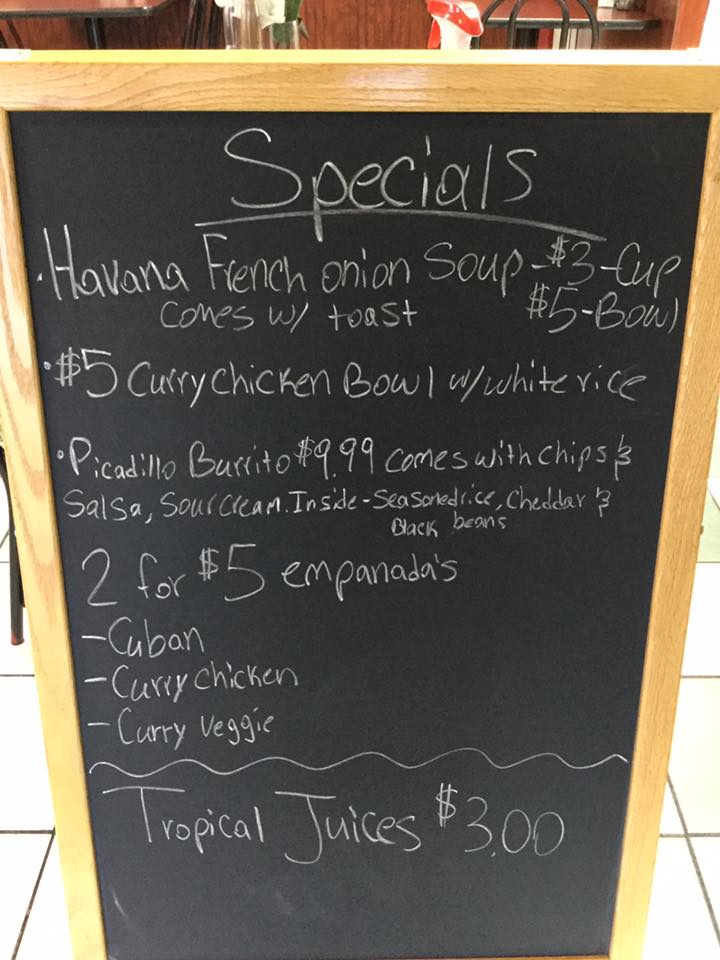 Specials
·Havana French onion Soup-$3-Cup
comes w/ toast $5-Bowl
·$5 Curry chicken Bowl w/white rice
·Picadillo Burrito $9.99 comes with chips &
Salsa, Sour cream. Inside-Seasoned rice, Cheddar &
Black beans
2 for $5 empanada's
-Cuban
-Curry chicken
-Curry veggie
Tropical Juices $3.00